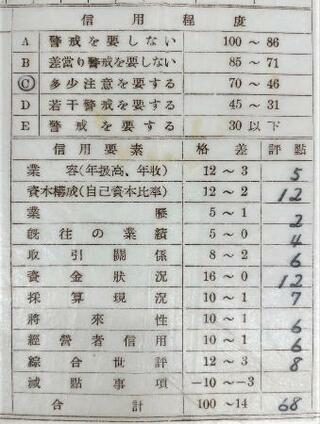 信用程度
A 警戒を要しない 100～86
B 差當り警戒を要しない 85～71
C 多少注意を要する 70～46
D 若干警戒を要する 45～31
E 警戒を要する 30以下
信用要素 格差 評點
業容(年扱高、年収) 12～3 5
資本構成(自己資本比率) 12～2 12
業歴 5～1 2
既往の業績 5～0 4
取引關係 8～2 6
資金狀況 16～0 12
採算現況 10～1 7
將來性 10～1 6
經營者信用 10～1 6
綜合世評 12～3 8
減點事項 -10～-3
合計 100～14 68